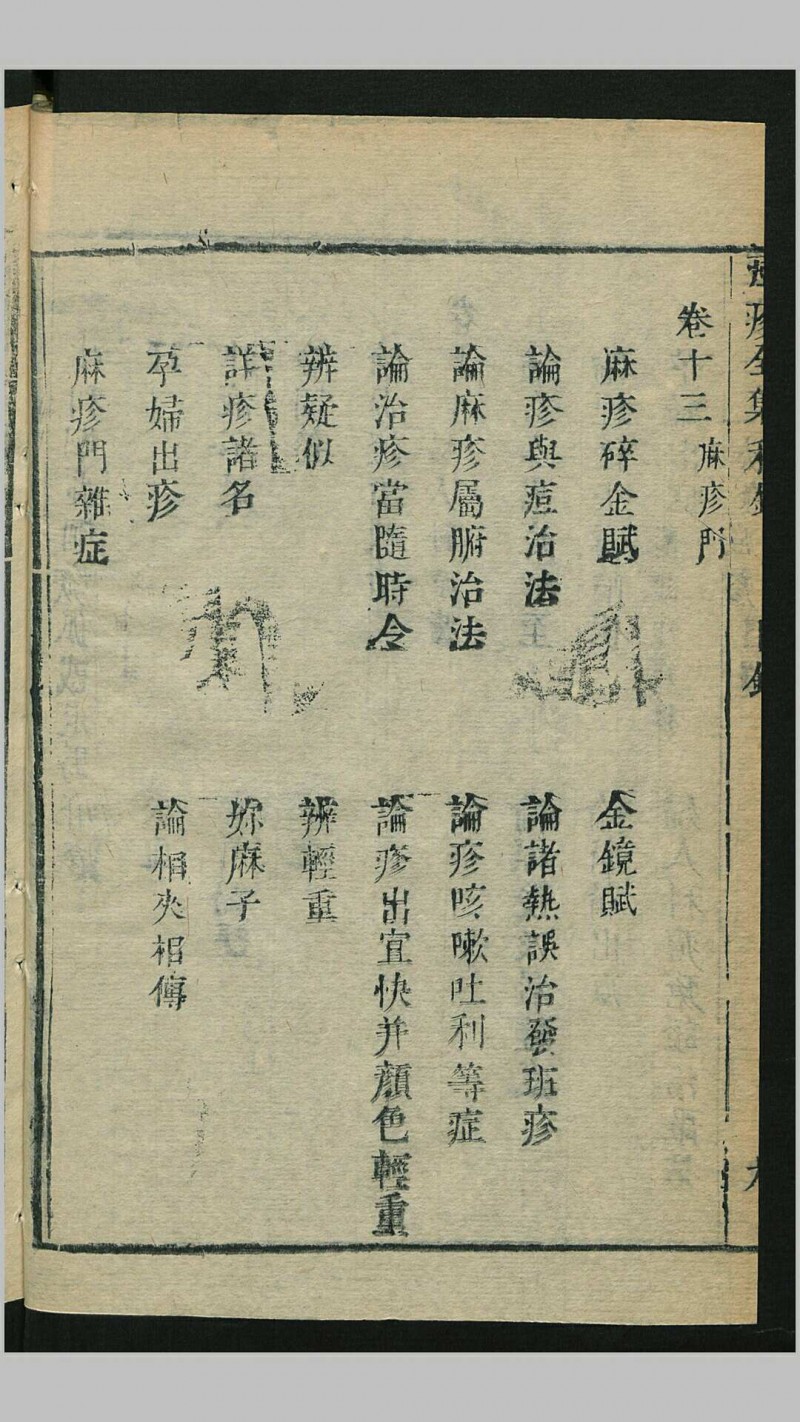 卷十三 麻疹門
麻疹碎金賦 金鏡賦
論疹與痘治法 論諸熱誤治發班疹
論麻疹屬腑治法 論疹咳嗽吐利等症
論治疹當隨時令 論疹出宜快并顏色輕重
辨疑似 辨輕重
詳疹諸名 妳麻子
孕婦出疹 論相夾相傳
麻疹門雜症